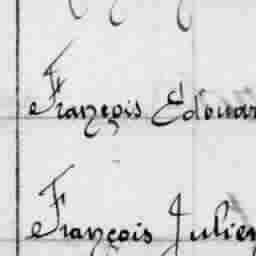 François Edouar
François Julien